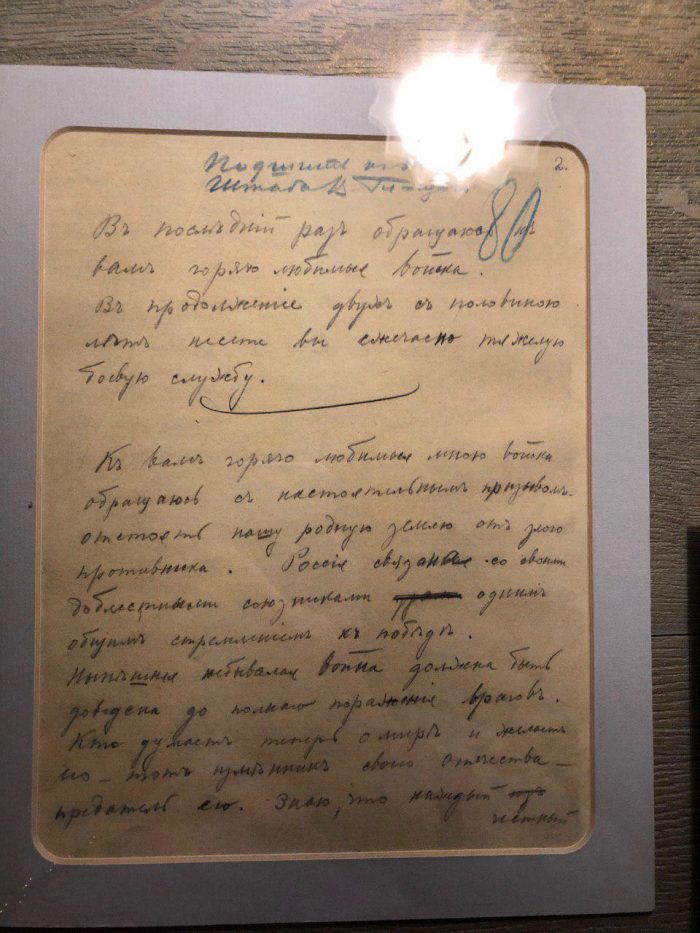 2.
Подшить къ
Штаба В. Гл-
80
Въ послѣдній разъ обращаюсь къ
вамъ горячо любимые войска.
Въ продолженіе двухъ съ половиною
лѣтъ несете вы ежечасно тяжелую
боевую службу.
Къ вамъ горячо любимыя мною войска
обращаюсь съ настоятельнымъ призывомъ
отстоять нашу родную землю отъ злого
противника. Россія связаная со своими
доблестными союзниками однимъ
общимъ стремленіемъ къ побѣдѣ.
Нынѣшняя небывалая война должна быть
доведена до полнаго пораженія враговъ.
Кто думаетъ теперь о мирѣ и желаетъ
его – тотъ измѣнникъ своего отечества –
предатель его. Знаю, что каждый
честный